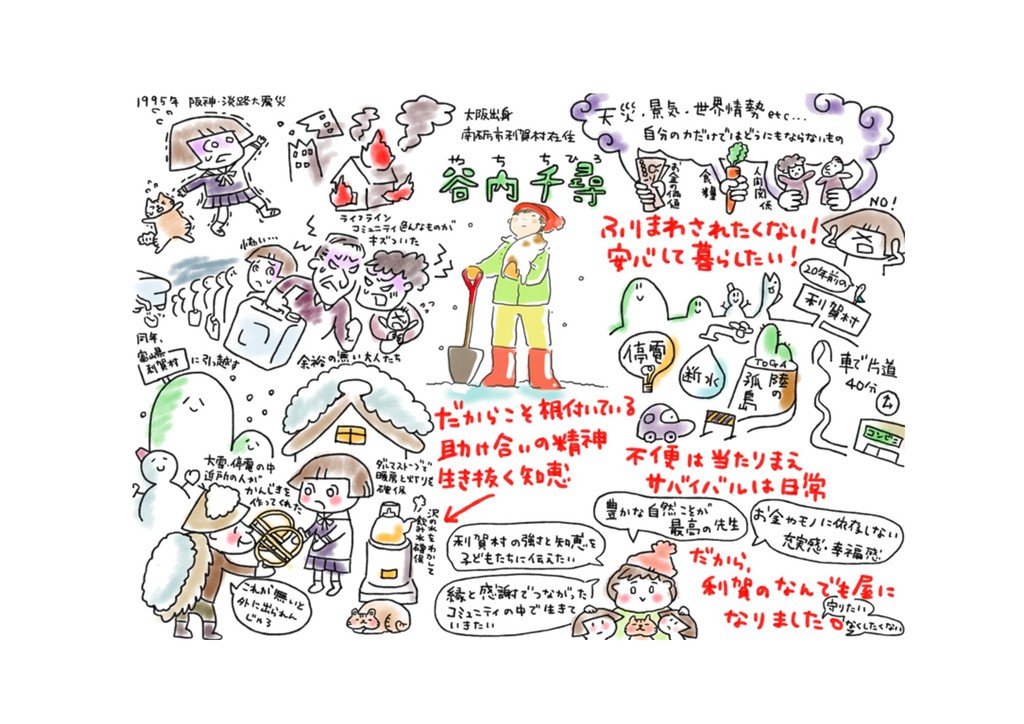 1995年 阪神・淡路大震災
ライフライン
コミュニティ いろんなものが
キズついた
怖い…
余裕の無い大人たち
同年、
富山県
利賀村
に引っ越す
大雪・停電の中
近所の人が
かんじきを
作ってくれた
これが無いと
外に出られん
じゃろ
ダルマストーブで
暖房と灯りを
確保
沢の水をわかして
飲み水確保
大阪出身
南砺市利賀村在住
やちちひろ
谷内千尋
だからこそ根付いている
助け合いの精神
生き抜く知恵
利賀村の強さと知恵を
子どもたちに伝えたい
縁と感謝でつながった
コミュニティの中で生きて
いきたい
天災・景気・世界情勢etc…
自分の力だけではどうにもならないもの
お金の価値
食糧
人間関係
NO!
ふりまわされたくない!
安心して暮らしたい!
20年前の
利賀村
停電
断水
TOGA
陸の
孤島
車で片道
40分
コンビニ
不便は当たりまえ
サバイバルは日常
豊かな自然ことが
最高の先生
お金やモノに依存しない
充実感・幸福感
だから、
利賀のなんでも屋に
なりました。
守りたい
なくしたくない